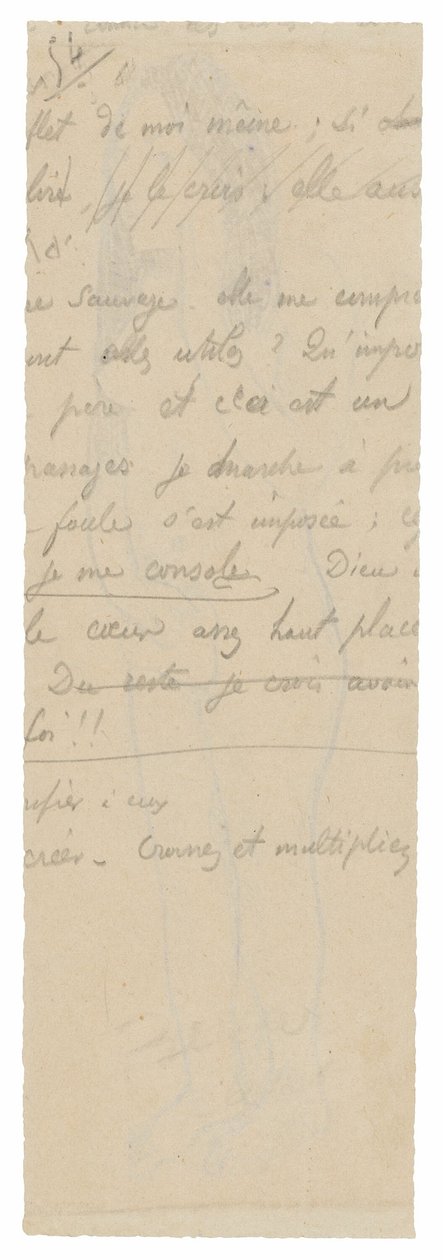 54
flet de moi même ; si
je le crois ; elle aus
re sauvage elle me compre
ont elles utiles ? Qu'impo
père et c'est un
passages je marche à pre
foule s'est imposée ;
je me console Dieu
le cœur assez haut place
Du reste je crois avoir
foi !!
à eux
créer - Croissez et multipliez